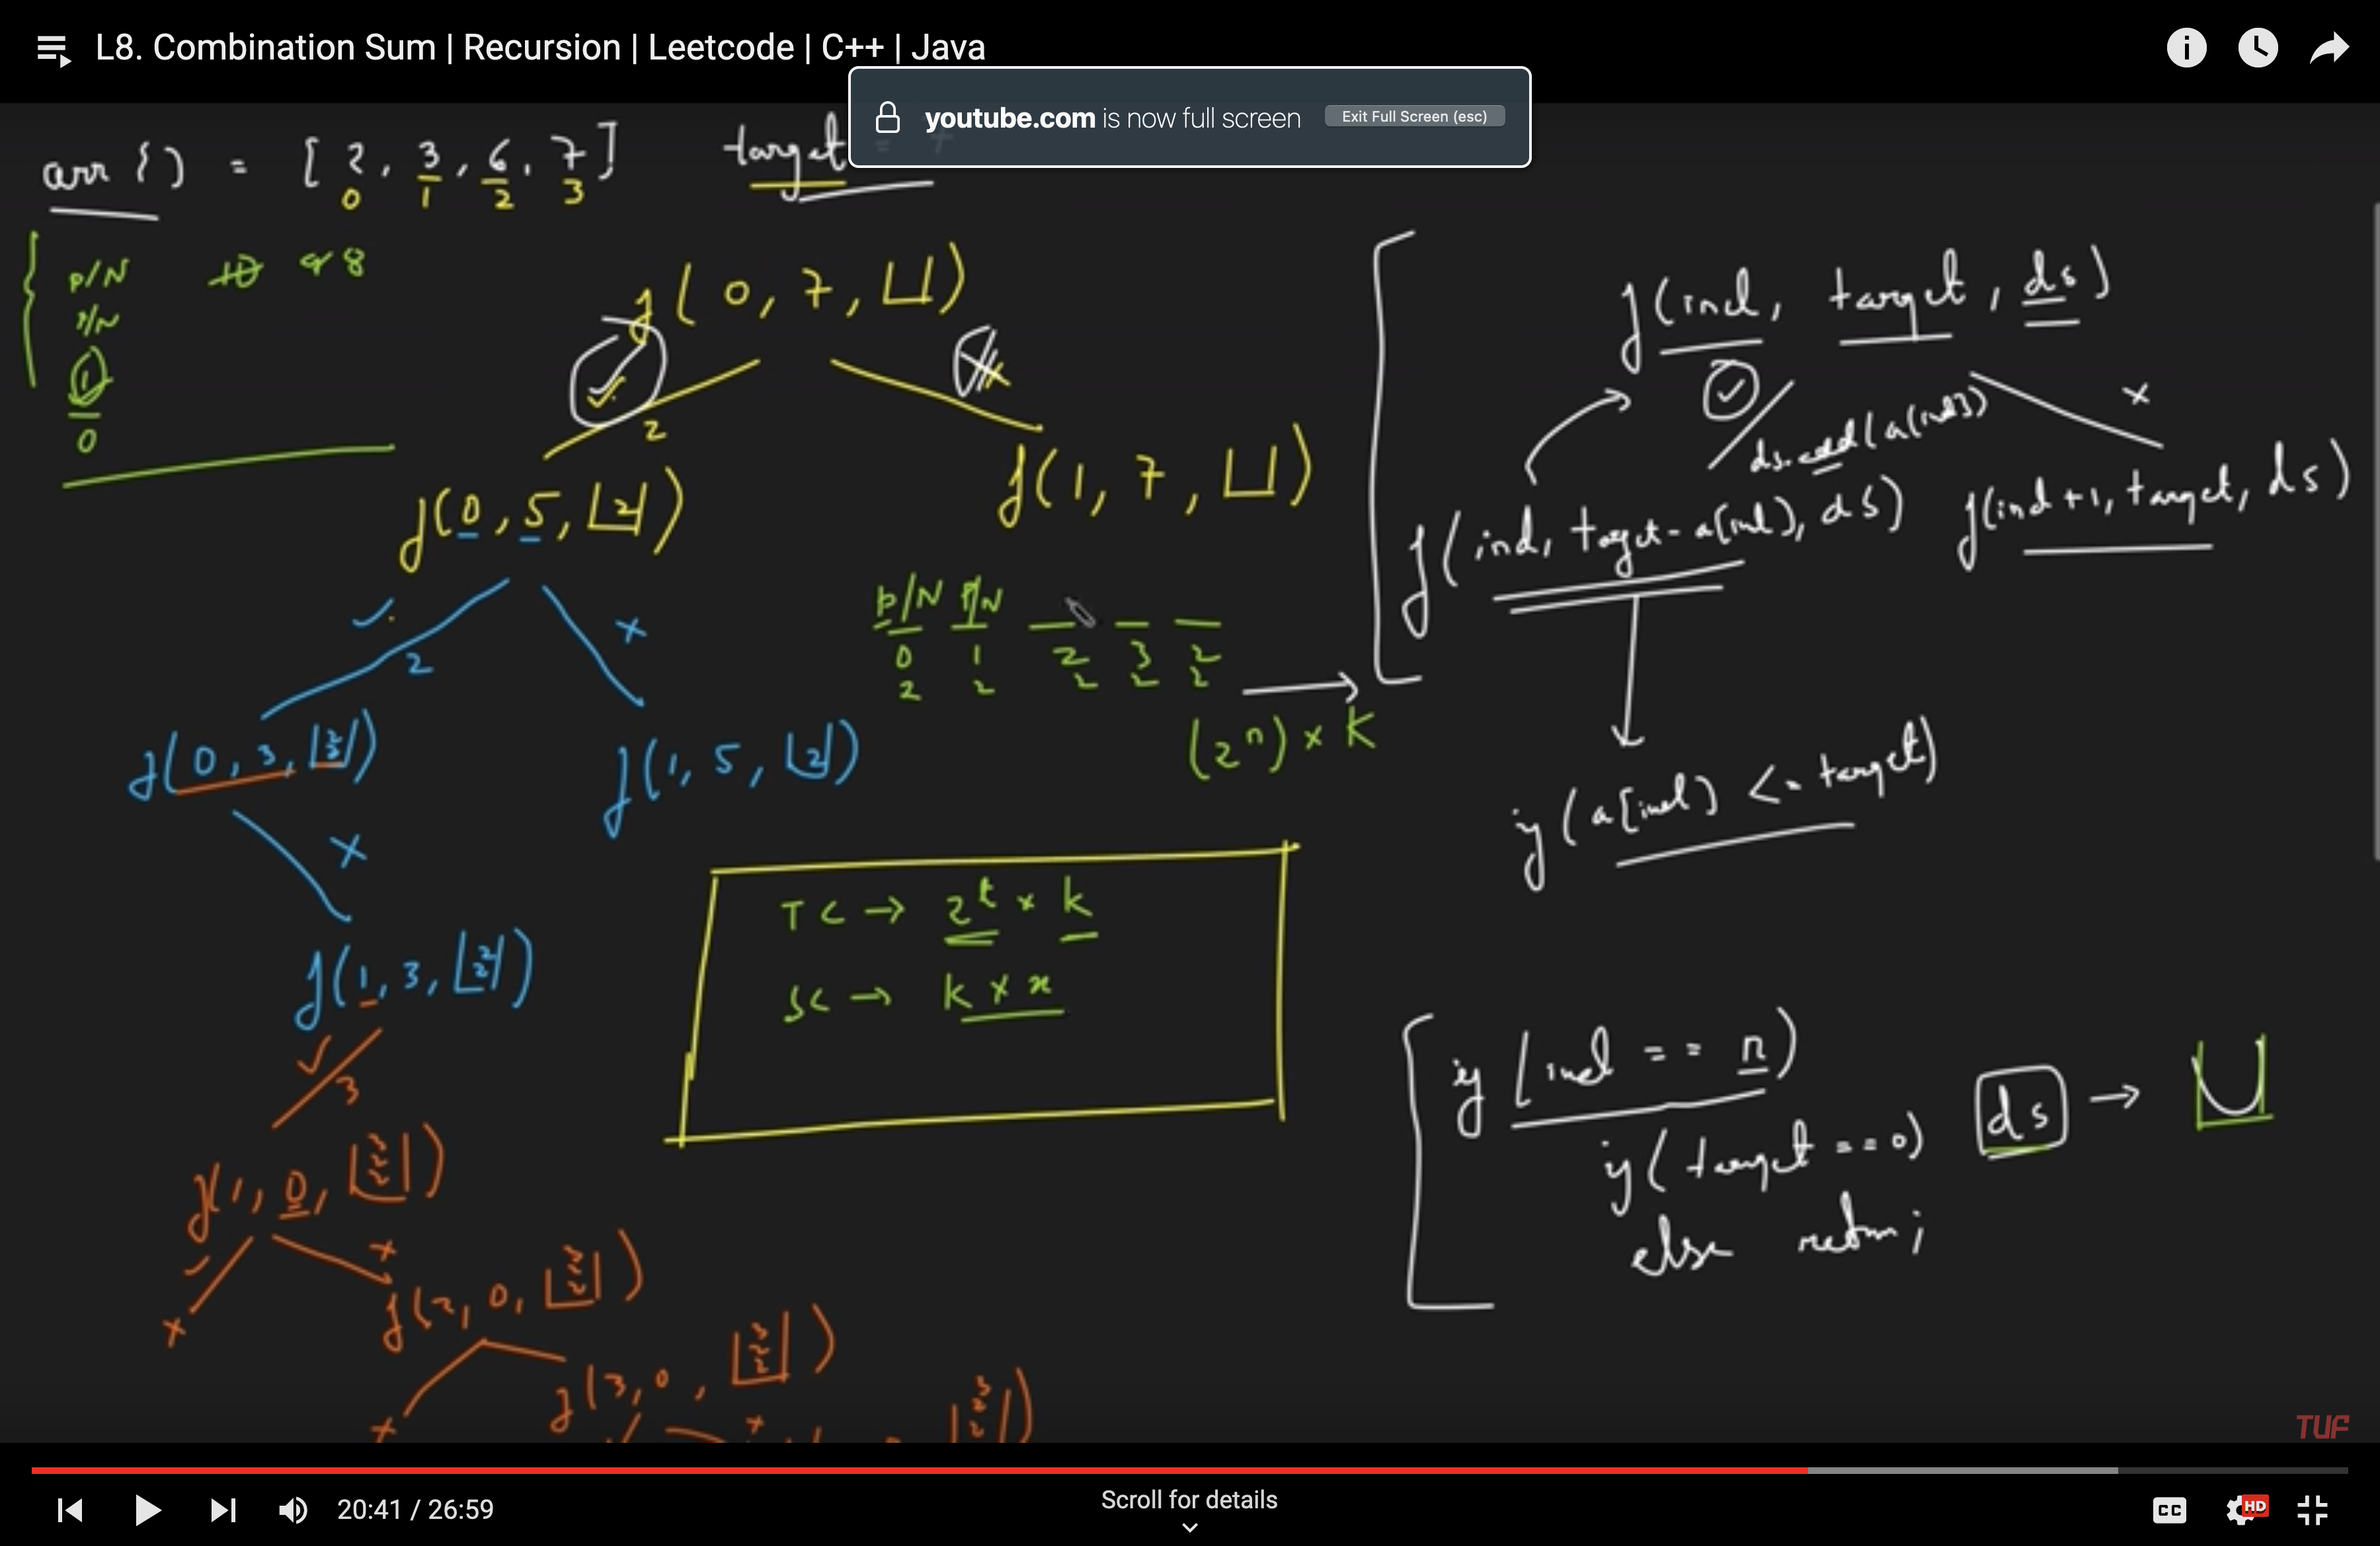 L8. Combination Sum | Recursion | Leetcode | C++ | Java
youtube.com is now full screen
Exit Full Screen (esc)
arr {} = [2, 3, 6, 7] target =
0 1 2 3
P/N
P/N
1
0
10 or 8
f(0, 7, )
2
f(0, 5, 2)
f(1, 7, )
2
f(0, 3, 2 2)
f(1, 5, 2)
f(1, 3, 2 2)
3
f(1, 0, 3 2 2)
f(2, 0, 3 2 2)
f(3, 0, 3 2 2)
3 2 2
P/N P/N
0 1 2 3 2
2 2 2 2 2
(2^n) x k
TC → 2^t x k
SC → k x x
f(ind, target, ds)
ds.add(a[ind])
f(ind, target - a[ind], ds)
f(ind+1, target, ds)
if (a[ind] <= target)
if (ind == n)
if (target == 0)
ds →
else return;
TUF
20:41 / 26:59
Scroll for details
CC
HD